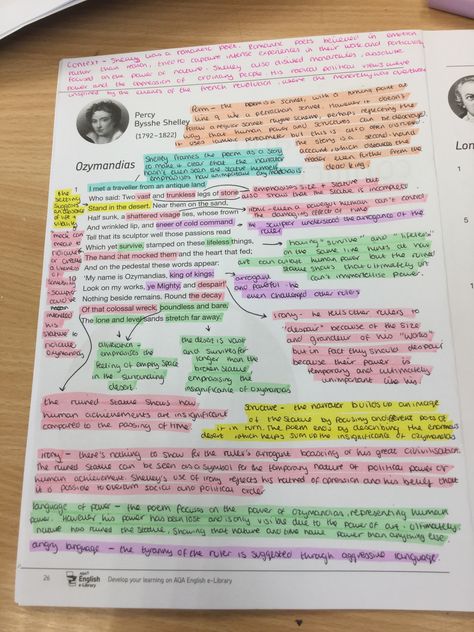 Context - Shelley was a romantic poet. Romantic poets believed in emotion
rather than reason, tried to capture intense experiences in their work and particularly
focused on the power of nature. Shelley also disliked monarchies, absolute
power and the oppression of ordinary people. His radical political views were
inspired by the events of the French revolution, where the monarchy was overthrown
Percy
Bysshe Shelley
(1792–1822)
form - the poem is a sonnet, with a turning point at
line 9 like a petrarchan sonnet. However it doesn't
follow a regular sonnet rhyme scheme, perhaps reflecting the
way that human power and structures can be destroyed.
It uses iambic pentameter but this is also often disrupted
the story is a second-hand
account, which distances the
reader even further from the
dead king.
Shelley frames the poem as a story
to make it clear that the narrator
hasn't even seen the statue himself
emphasises how unimportant
Ozymandias
1
I met a traveller from an antique land
Who said: Two vast and trunkless legs of stone
Stand in the desert. Near them on the sand,
Half sunk, a shattered visage lies, whose frown
And wrinkled lip, and sneer of cold command
Tell that its sculptor well those passions read
Which yet survive, stamped on these lifeless things,
The hand that mocked them and the heart that fed;
And on the pedestal these words appear:
'My name is Ozymandias, king of kings:
Look on my works, ye Mighty, and despair!'
Nothing beside remains. Round the decay
Of that colossal wreck, boundless and bare,
The lone and level sands stretch far away.'
the
setting
suggests
an absence
of life &
vitality
emphasises size & stature but
also show that the statue is incomplete
ironic - even a powerful human can't control
the damaging effects of time
the sculptor understood the arrogance of the
ruler
having "survive" and "lifeless"
on the same line hints at how
art can outlast human power but the ruined
statue shows that ultimately art
can't immortalise power.
arrogant
and powerful - he
even challenged other rulers
irony - he tells other rulers to
"despair" because of the size
and grandeur of his "works"
but in fact they should despair
because their power is
temporary and ultimately
unimportant like his
alliteration -
emphasises the
feeling of empty space
in the surrounding
desert
the desert is vast
and survives far
longer than the
broken statue,
emphasising the
insignificance of Ozymandias
the ruined statue shows how
human achievements are insignificant
compared to the passing of time.
structure - the narrator builds up an image
of the statue by focusing on different parts of
it in turn. The poem ends by describing the enormous
desert which helps sum up the insignificance of Ozymandias
irony - there's nothing to show for the ruler's arrogant boasting of his great civilisation.
The ruined statue can be seen as a symbol for the temporary nature of political power or
human achievement. Shelley's use of irony reflects his hatred of oppression and his belief that
it is possible to overturn social and political order.
language of power - the poem focuses on the power of Ozymandias, representing human
power. However his power has been lost and is only visible due to the power of art. Ultimately
nature has ruined the statue, showing that nature and time have power than anything else.
angry language - the tyranny of the ruler is suggested through aggressive language.
26
AQA
English
e-Library
Develop your learning on AQA English e-Library
Lon